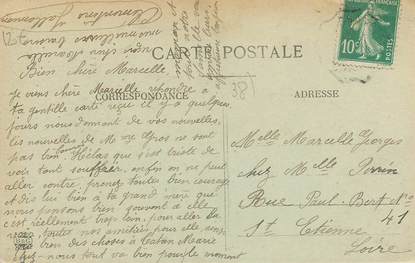 CARTE POSTALE
CORRESPONDANCE
ADRESSE
10c
38
Bien chère Marcelle
je viens chère Marcelle répondre à
ta gentille carte reçu il y a quelques
jours nous donnant de vos nouvelles,
les nouvelles de Mme Gros ne sont
pas bien bonnes Hélas que c'est triste de
voir tant souffrir, enfin on ne peut
aller contre, prenez toutes bien courage
et dis lui bien à ta grand mère que
nous pensons bien souvent à elle
c'est réellement trop loin, pour aller la
voir. toutes nos amitiés pour elle ainsi
bien des choses à Marie
chez nous tout va bien pour le moment
Melle Marcelle Georges
chez Melle Perrin
Rue Paul-Bert No
41
St Etienne
Loire